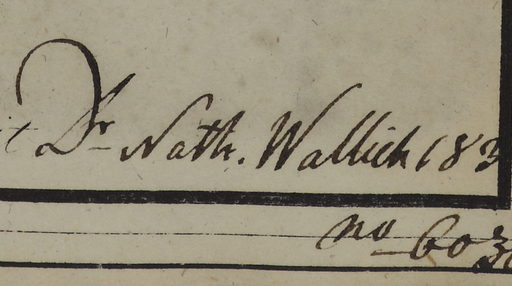 Dr Nath. Wallich 183
no 603